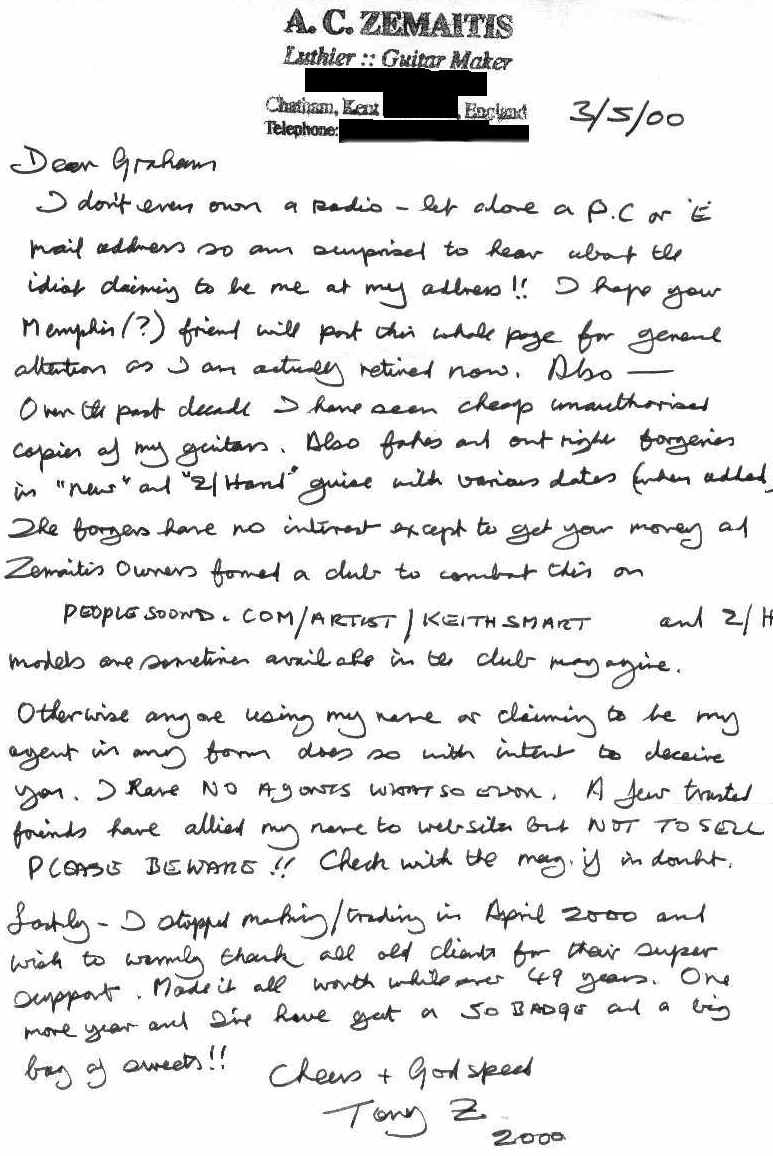 A. C. ZEMAITIS
Luthier :: Guitar Maker
Chatham, Kent , England
Telephone:
3/5/00
Dear Graham
I don't even own a radio – let alone a P.C or 'E'
mail address so am surprised to hear about the
idiot claiming to be me at my address!! I hope your
Memphis(?) friend will post this whole page for general
attention as I am actually retired now. Also —
Over the past decade I have seen cheap unauthorised
copies of my guitars. Also fakes and out right forgeries
in "new" and "2/Hand" guise with various dates (when added)
The forgers have no interest except to get your money ad
Zemaitis Owners formed a club to combat this on
PEOPLESOUND.COM/ARTIST/KEITHSMART and 2/H
models are sometimes available in the club magazine.
Otherwise anyone using my name or claiming to be my
agent in any form does so with intent to deceive
you. I Have NO AGENTS WHATSOEVER. A few trusted
friends have allied my name to websites but NOT TO SELL
PLEASE BEWARE!! Check with the mag. if in doubt.
Lastly – I stopped making/trading in April 2000 and
wish to warmly thank all old clients for their super
support. Made it all worth while over 49 years. One
more year and I'd have got a 50 BADGE and a big
bag of sweets!!
Cheers + Godspeed
Tony Z
2000